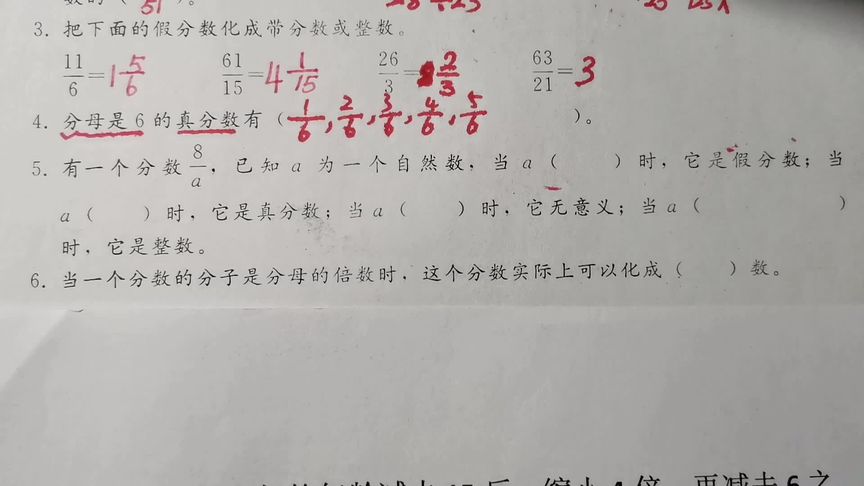 数的（ 51 ）。
3. 把下面的假分数化成带分数或整数。
11/6=1 5/6 61/15=4 1/15 26/3=8 2/3 63/21=3
4. 分母是6的真分数有（1/6，2/6，3/6，4/6，5/6 ）。
5. 有一个分数8/a，已知a为一个自然数，当a（ ）时，它是假分数；当
a（ ）时，它是真分数；当a（ ）时，它无意义；当a（ ）
时，它是整数。
6. 当一个分数的分子是分母的倍数时，这个分数实际上可以化成（ ）数。